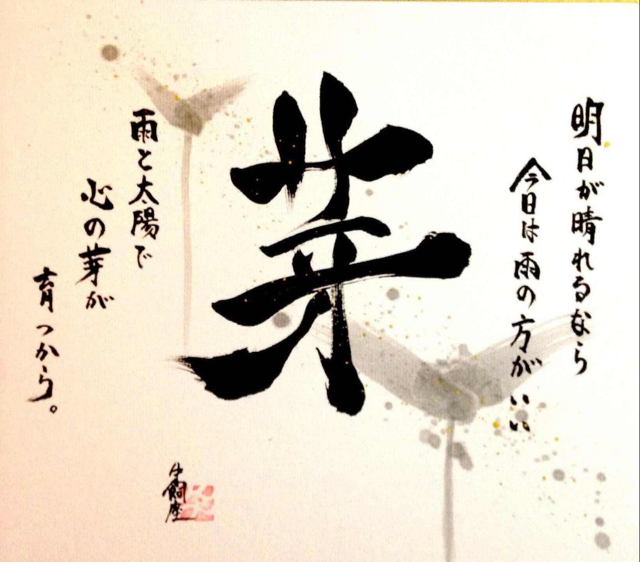 明日が晴れるなら
今日は雨の方がいい
芽
雨と太陽で
心の芽が
育つから。
牛飼座